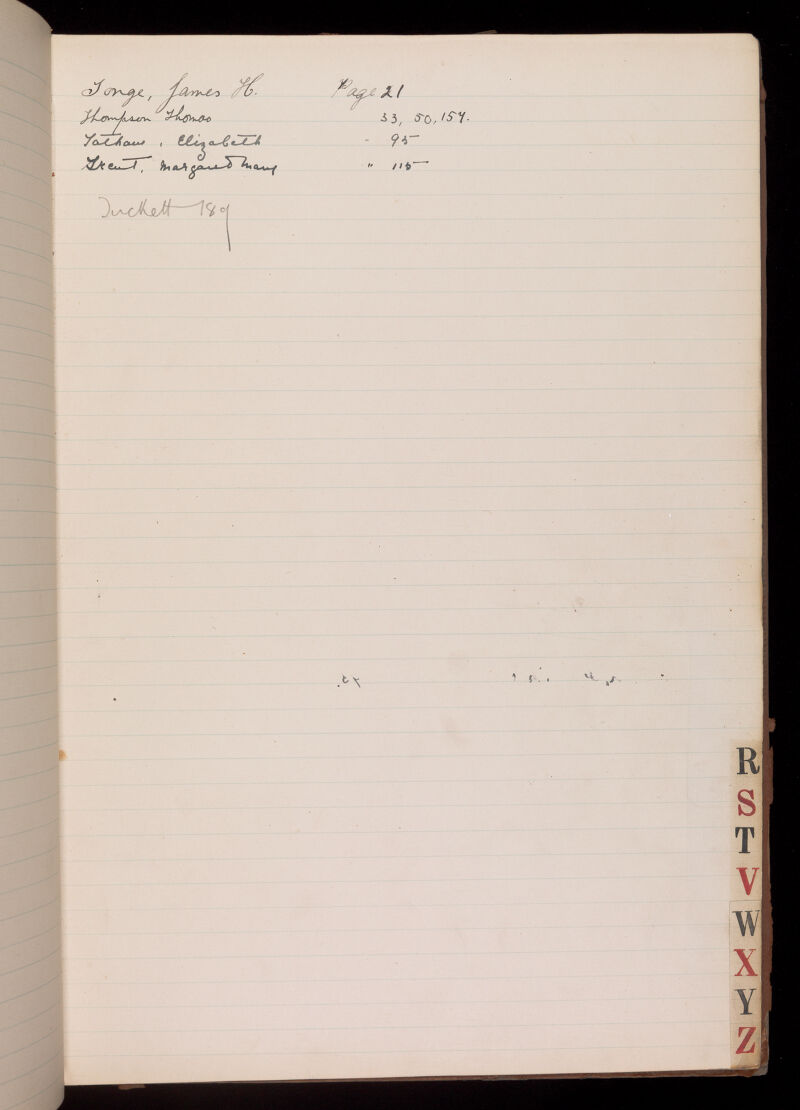 Tonge, James H. Page 21
Thompson Thomas 33, 50, 157.
Tatham, Elizabeth - 95
Trent, Margaret Mary " 115
Tuckett 189
R
S
T
V
W
X
Y
Z